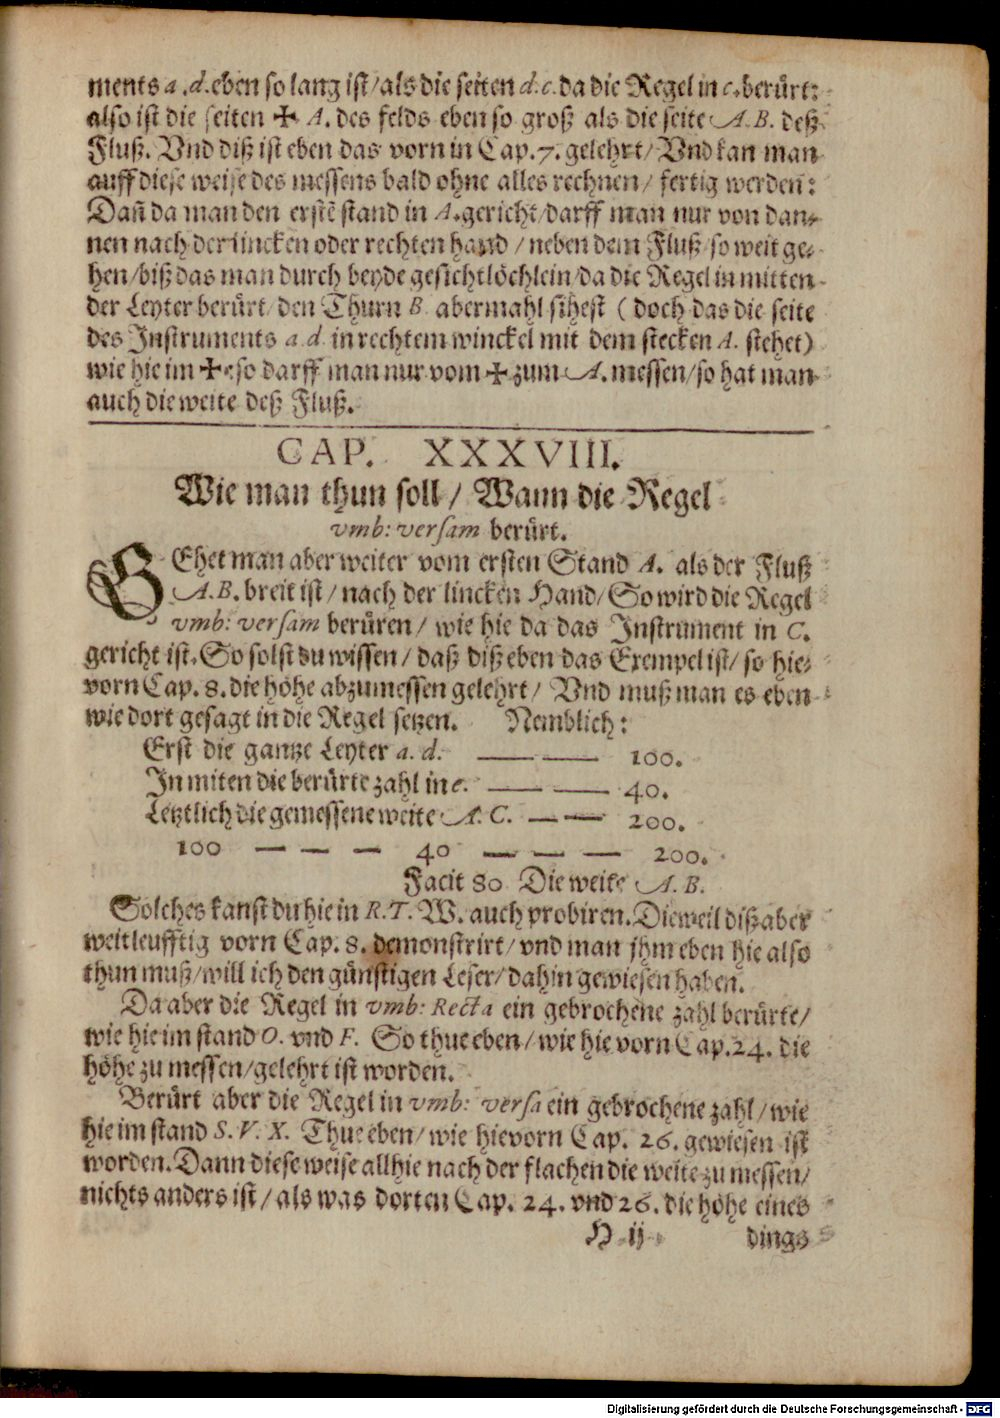 ments a.d. eben so lang ist/als die seiten d.c. da die Regel in c. berürt:
also ist die seiten ✠ A. des felds eben so groß als die seite A.B. deß
Fluß. Vnd diß ist eben das vorn in Cap. 7. gelehrt/ Vnd kan man
auff diese weise des messens bald ohne alles rechnen/ fertig werden:
Dañ da man den erstẽ stand in A. gericht/darff man nur von dan-
nen nach der lincken oder rechten hand/neben dem Fluß/so weit ge-
hen/biß das man durch beyde gesichtlöchlein/da die Regel in mitten
der Leyter berürt/den Thurn B abermahl sihest ( doch das die seite
des Instruments a d in rechtem winckel mit dem stecken A. stehet)
wie hie im ✠: so darff man nur vom ✠ zum A. messen/so hat man
auch die weite deß Fluß.
CAP. XXXVIII.
Wie man thun soll/ Wann die Regel
vmb: versam berürt.
GEhet man aber weiter vom ersten Stand A. als der Fluß
A.B. breit ist/ nach der lincken Hand/ So wird die Regel
vmb: versam berüren/ wie hie da das Instrument in C.
gericht ist. So solst du wissen/ daß diß eben das Exempel ist/ so hie-
vorn Cap. 8. die höhe abzumessen gelehrt/ Vnd muß man es eben
wie dort gesagt in die Regel setzen. Nemblich:
Erst die gantze Leyter a. d. —— —— 100.
In miten die berürte zahl in e. —— —— 40.
Letztlich die gemessene weite A. C. — — 200.
100 — — — 40 — — — 200.
Facit 80 Die weite A. B.
Solches kanst du hie in R.T. W. auch probiren. Dieweil diß aber
weitleufftig vorn Cap. 8. demonstrirt/ vnd man jhm eben hie also
thun muß/will ich den günstigen Leser/dahin gewiesen haben.
Da aber die Regel in vmb: Recta ein gebrochene zahl berürte/
wie hie im stand O. vnd F. So thue eben/ wie hie vorn Cap. 24. die
höhe zu messen/gelehrt ist worden.
Berürt aber die Regel in vmb: versa ein gebrochene zahl/wie
hie im stand S. V. X. Thue eben/ wie hievorn Cap. 26. gewiesen ist
worden. Dann diese weise allhie nach der flachen die weite zu messen/
nichts anders ist/als was dorten Cap. 24. vnd 26. die höhe eines
H ij
dings
Digitalisierung gefördert durch die Deutsche Forschungsgemeinschaft - DFG